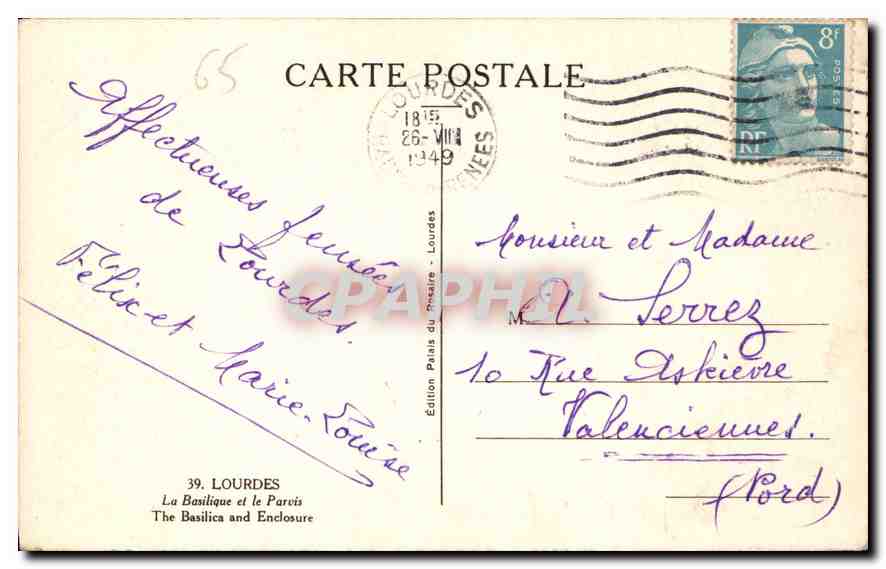 65
CARTE POSTALE
8f
POSTES
RF
LOURDES
18 15
26-VIII
1949
Affectueuses pensées
de Lourdes.
Félix et Marie-Louise
39. LOURDES
La Basilique et le Parvis
The Basilica and Enclosure
Édition Palais du Rosaire - Lourdes
CPAPHIL
Monsieur et Madame
M
V. Serrez
10 Rue Askièvre
Valenciennes.
(Nord)